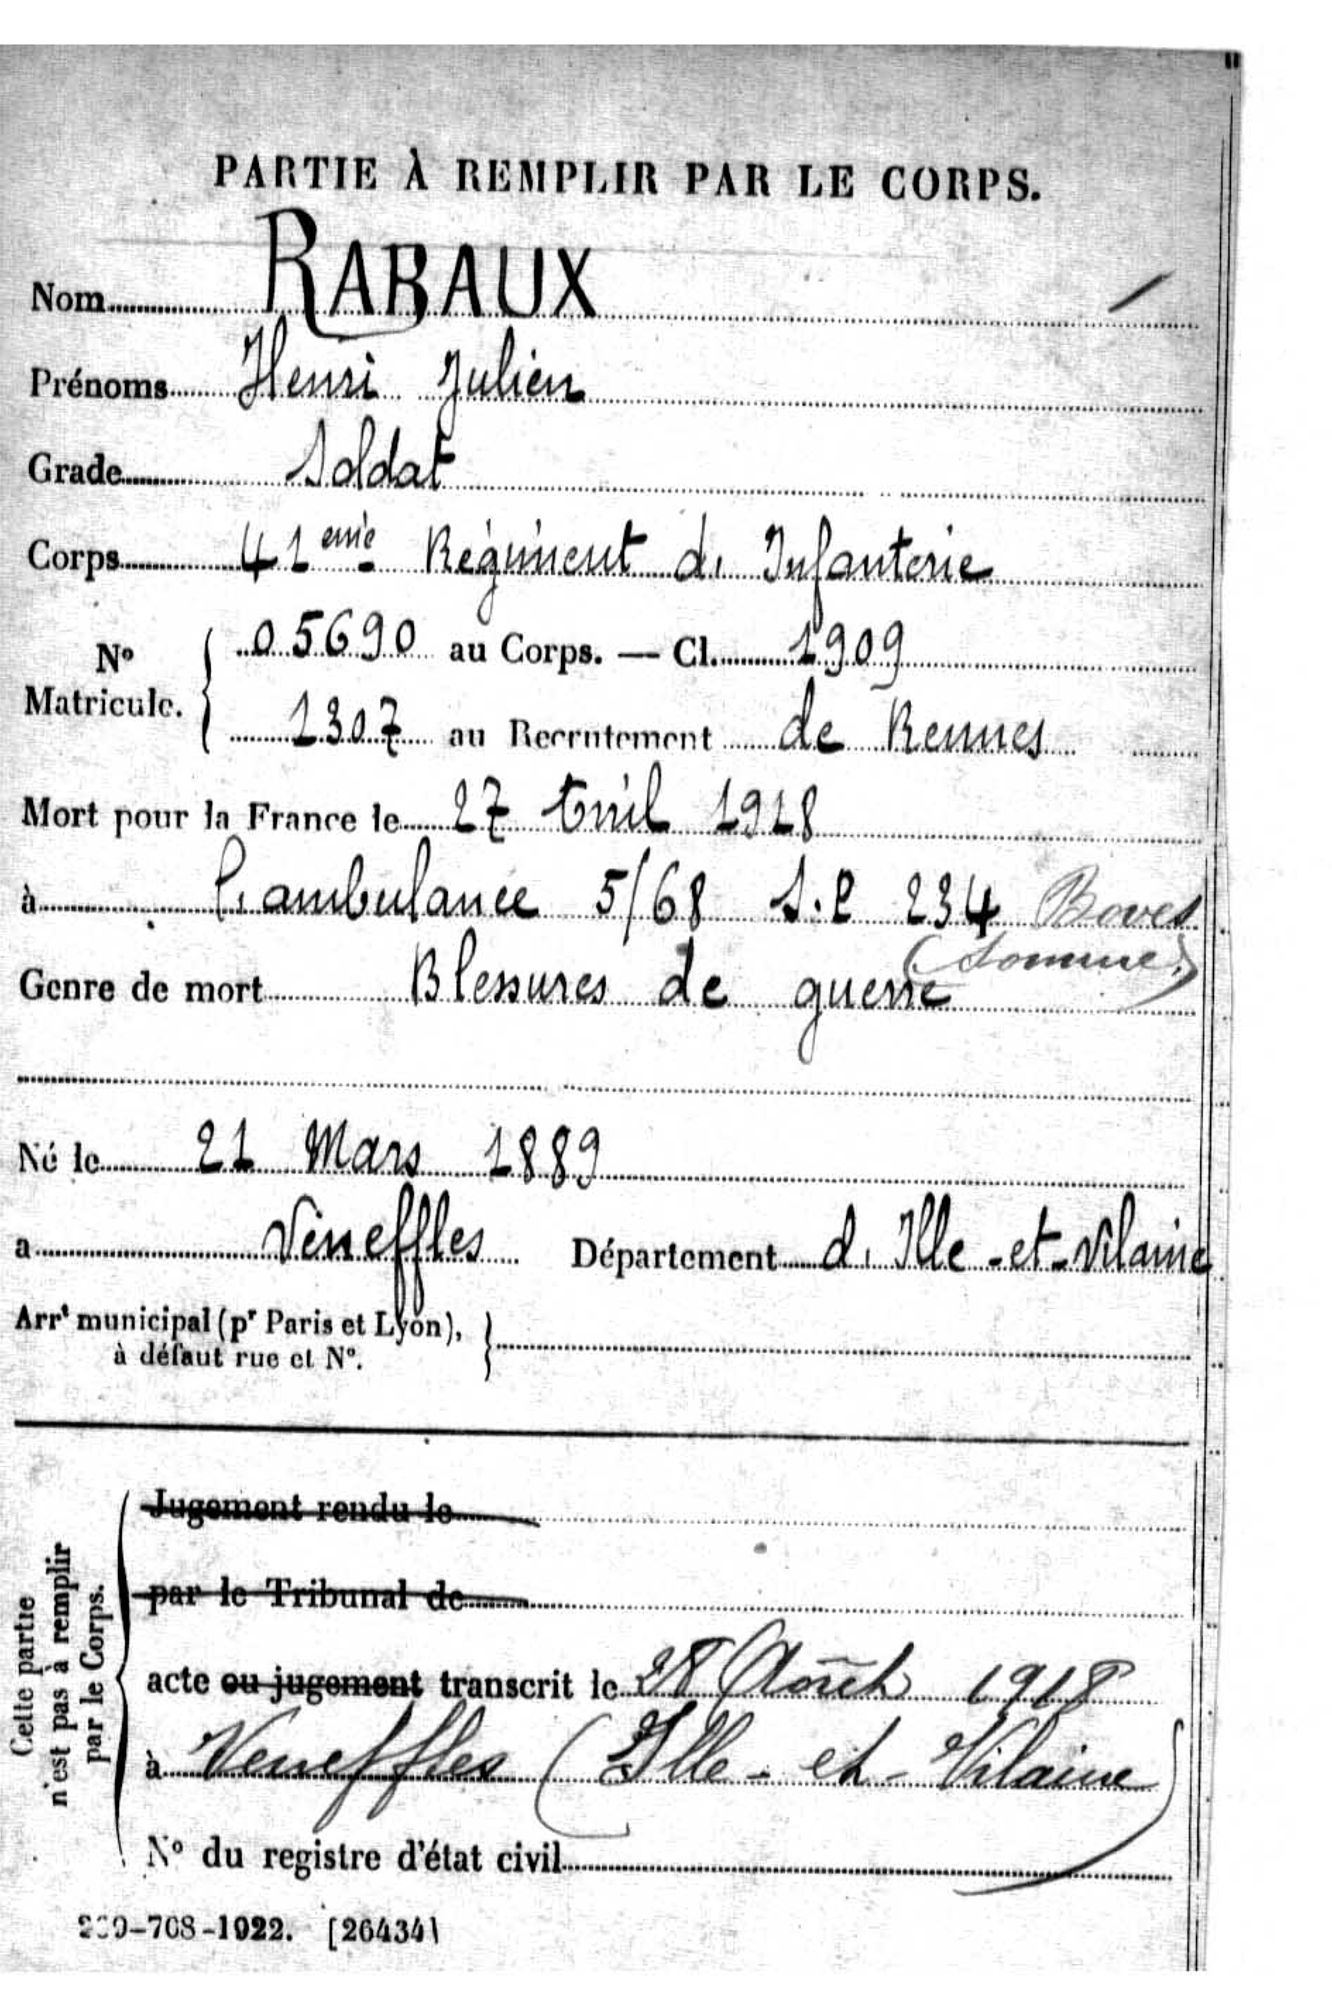 PARTIE À REMPLIR PAR LE CORPS.
Nom RABAUX
Prénoms Henri Julien
Grade Soldat
Corps 41ème Régiment d'Infanterie
No Matricule. { 05690 au Corps. — Cl. 1909
1307 au Recrutement de Rennes
Mort pour la France le 27 Avril 1918
à l'ambulance 5/68 S.P 234 Boves
(Somme)
Genre de mort Blessures de guerre
Né le 21 Mars 1889
à Veneffles Département d'Ille-et-Vilaine
Arrt municipal (pr Paris et Lyon), à défaut rue et No. }
Cette partie n'est pas à remplir par le Corps.
Jugement rendu le
par le Tribunal de
acte ou jugement transcrit le 28 Août 1918
à Veneffles (Ille-et-Vilaine)
No du registre d'état civil
-708-1922. [26434]